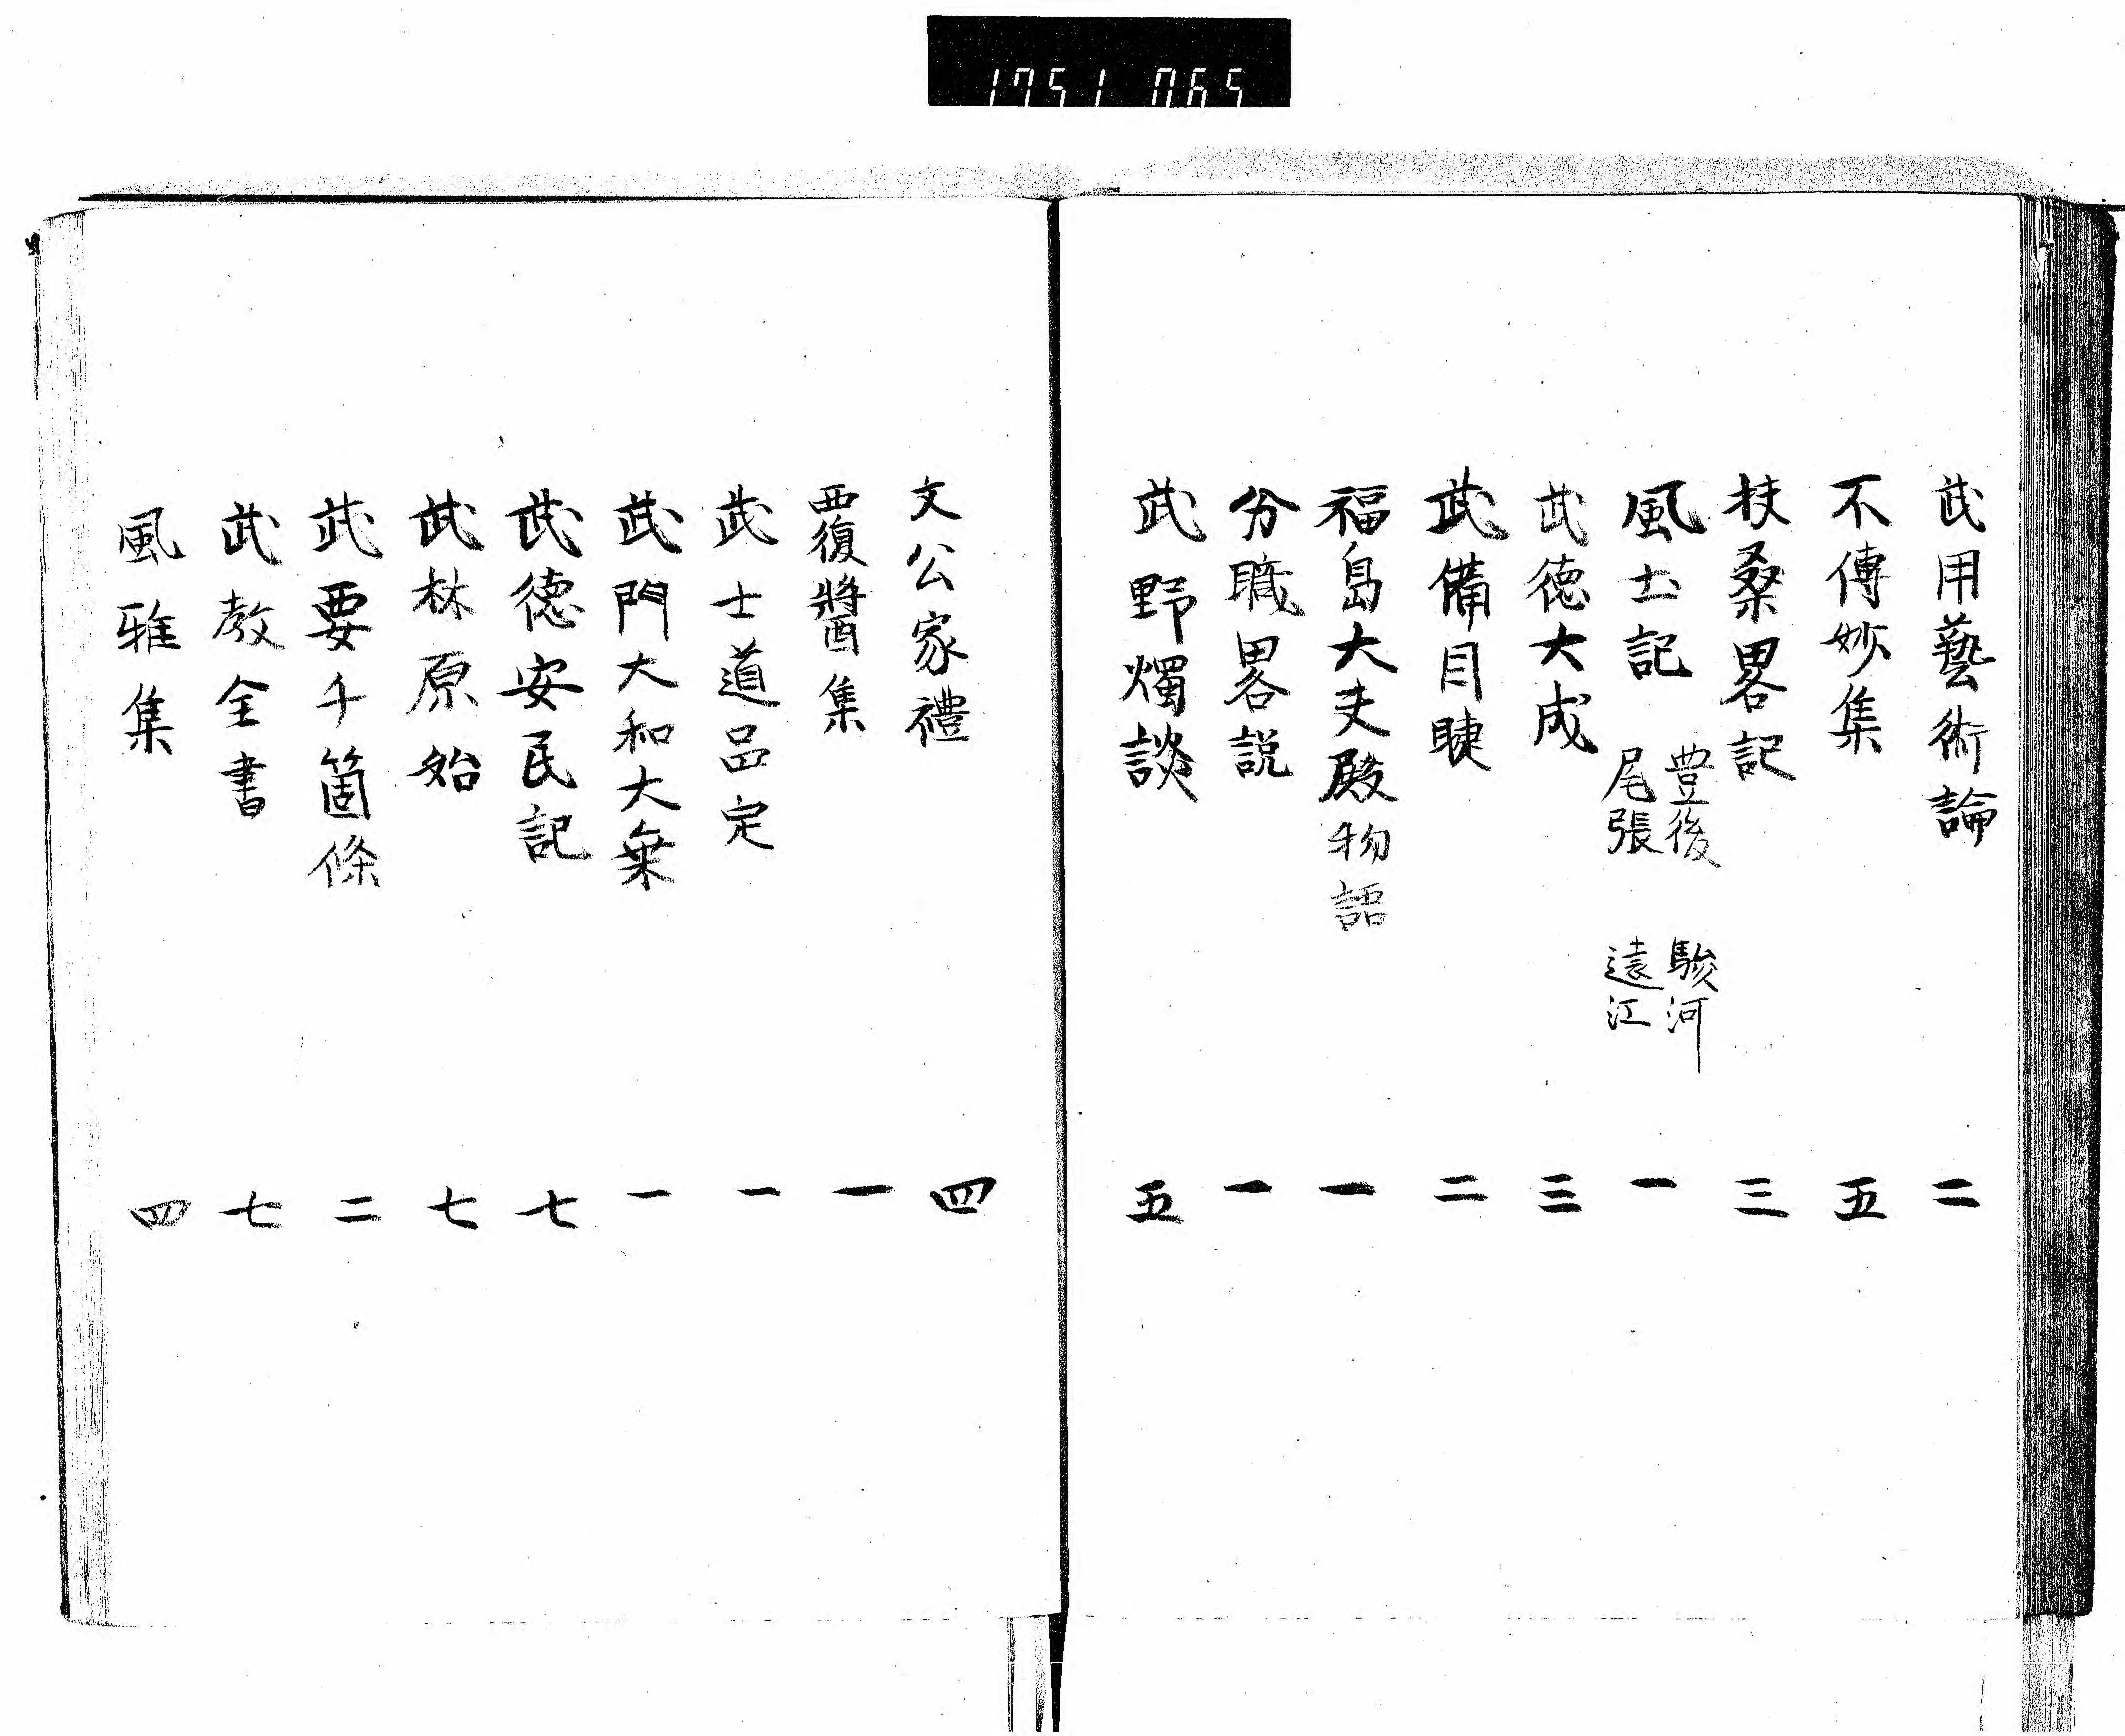 1751 065
武用藝術論 二
不傳妙集 五
扶桑畧記 三
風土記 豊後 駿河 尾張 遠江 一
武徳大成 三
武備目睫 二
福島大夫殿物語 一
分職畧説 一
武野燭談 五
文公家禮 四
覆醬集 一
武士道品定 一
武門大和大槩 一
武德安民記 七
武林原始 七
武要千箇條 二
武教全書 七
風雅集 四